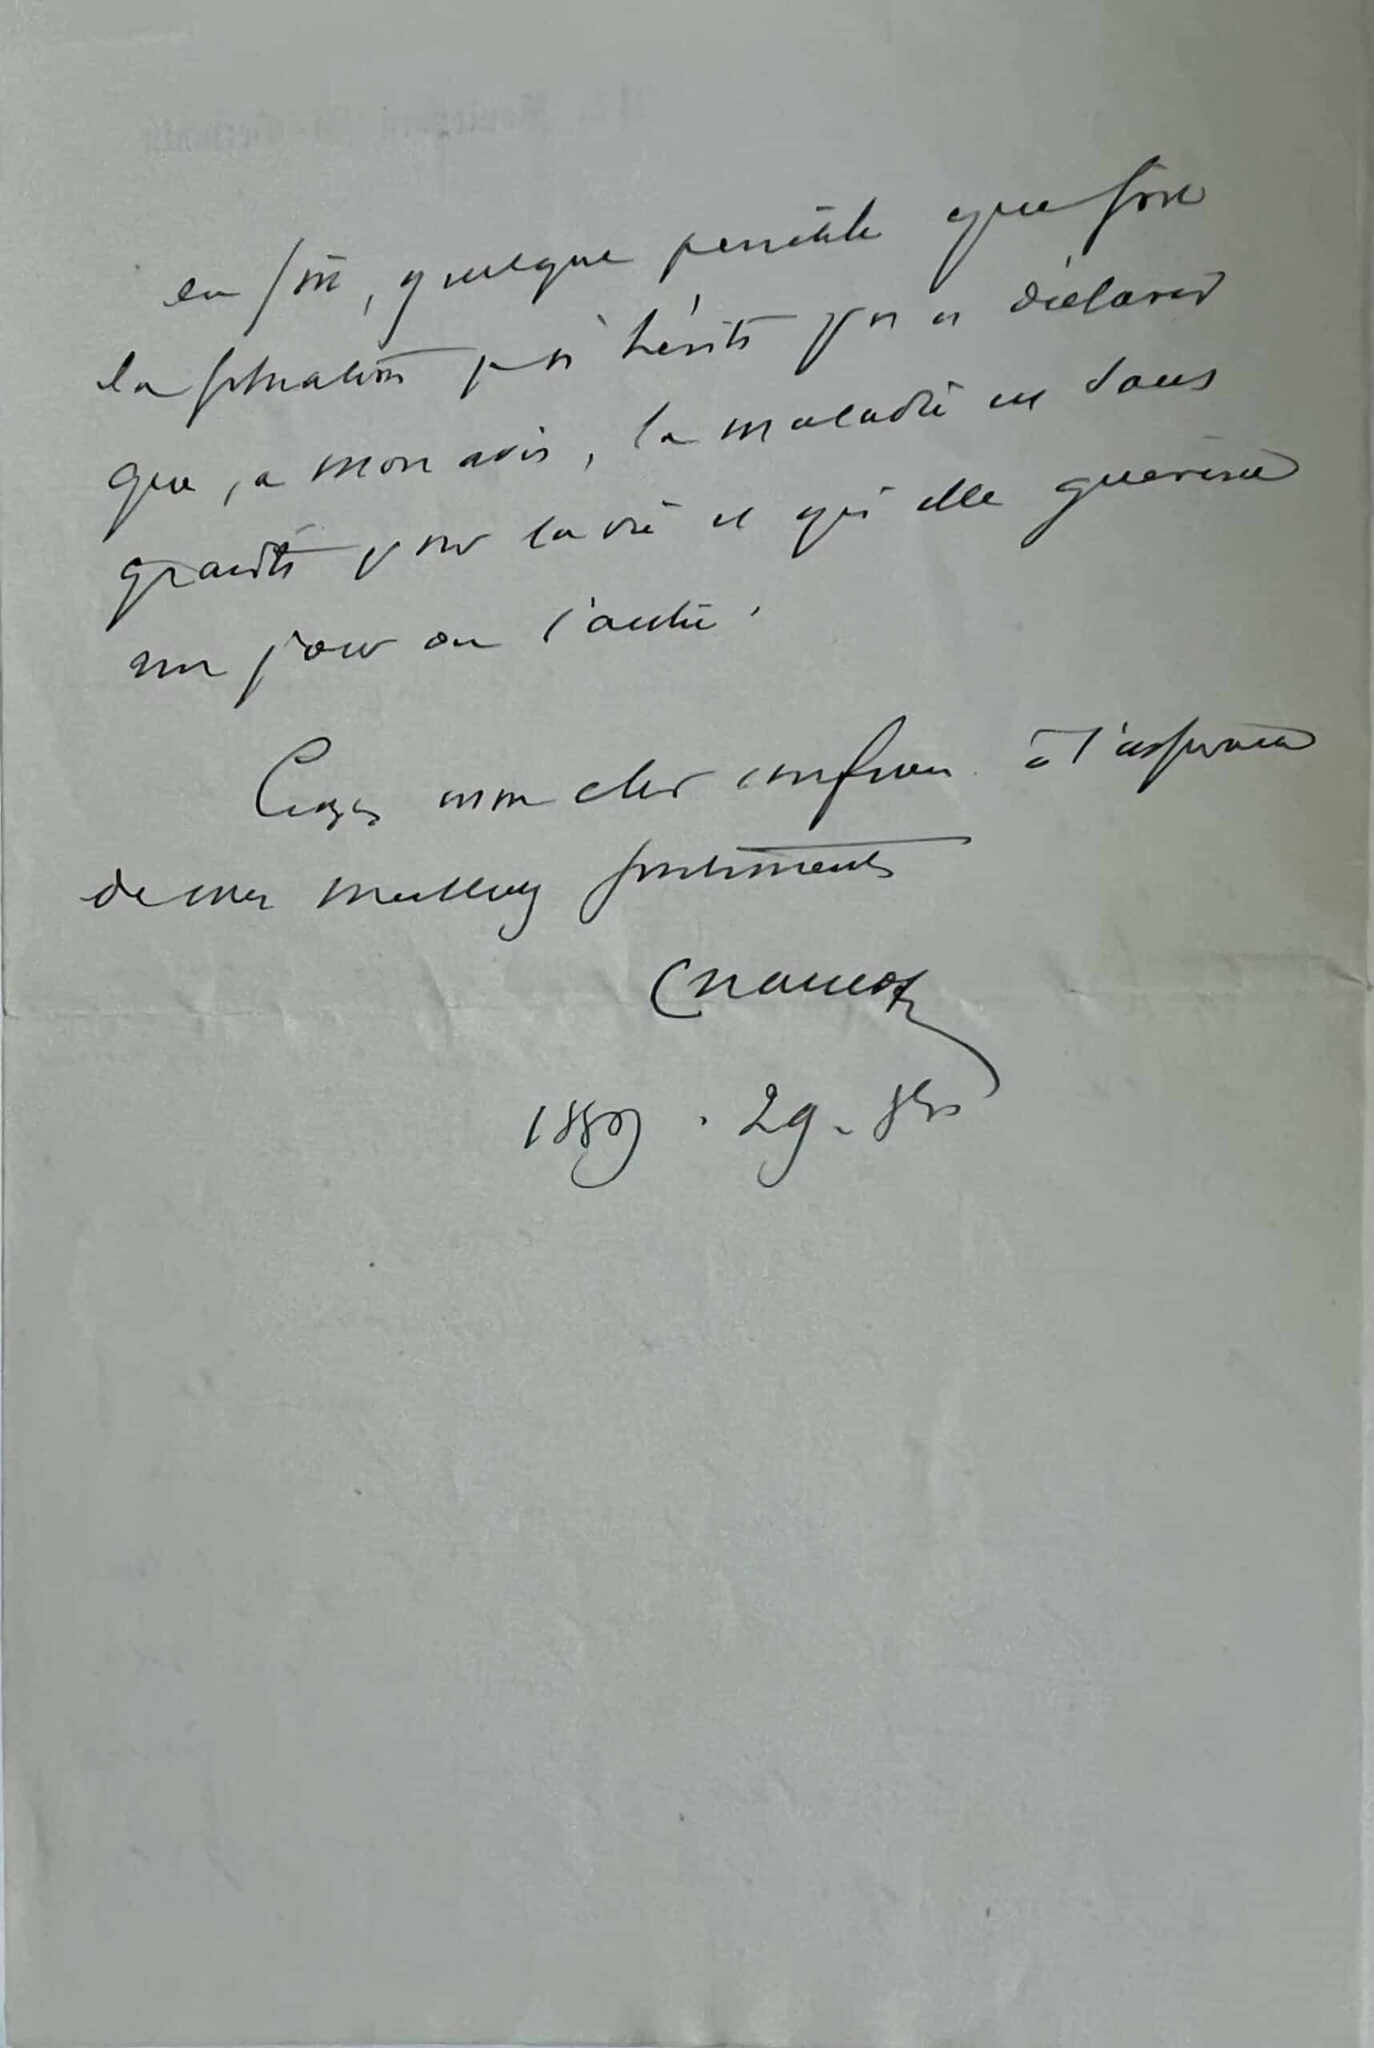 en soi, quelque pénible que soit
la situation je n'hésite pas a déclarer
que, a mon avis, la maladie est sans
gravité pour la vie et qu'elle guérira
un jour ou l'autre.
Croyez mon cher confrère à l'assurance
de mes meilleurs sentiments
Charcot
1889 . 29 - 8bre